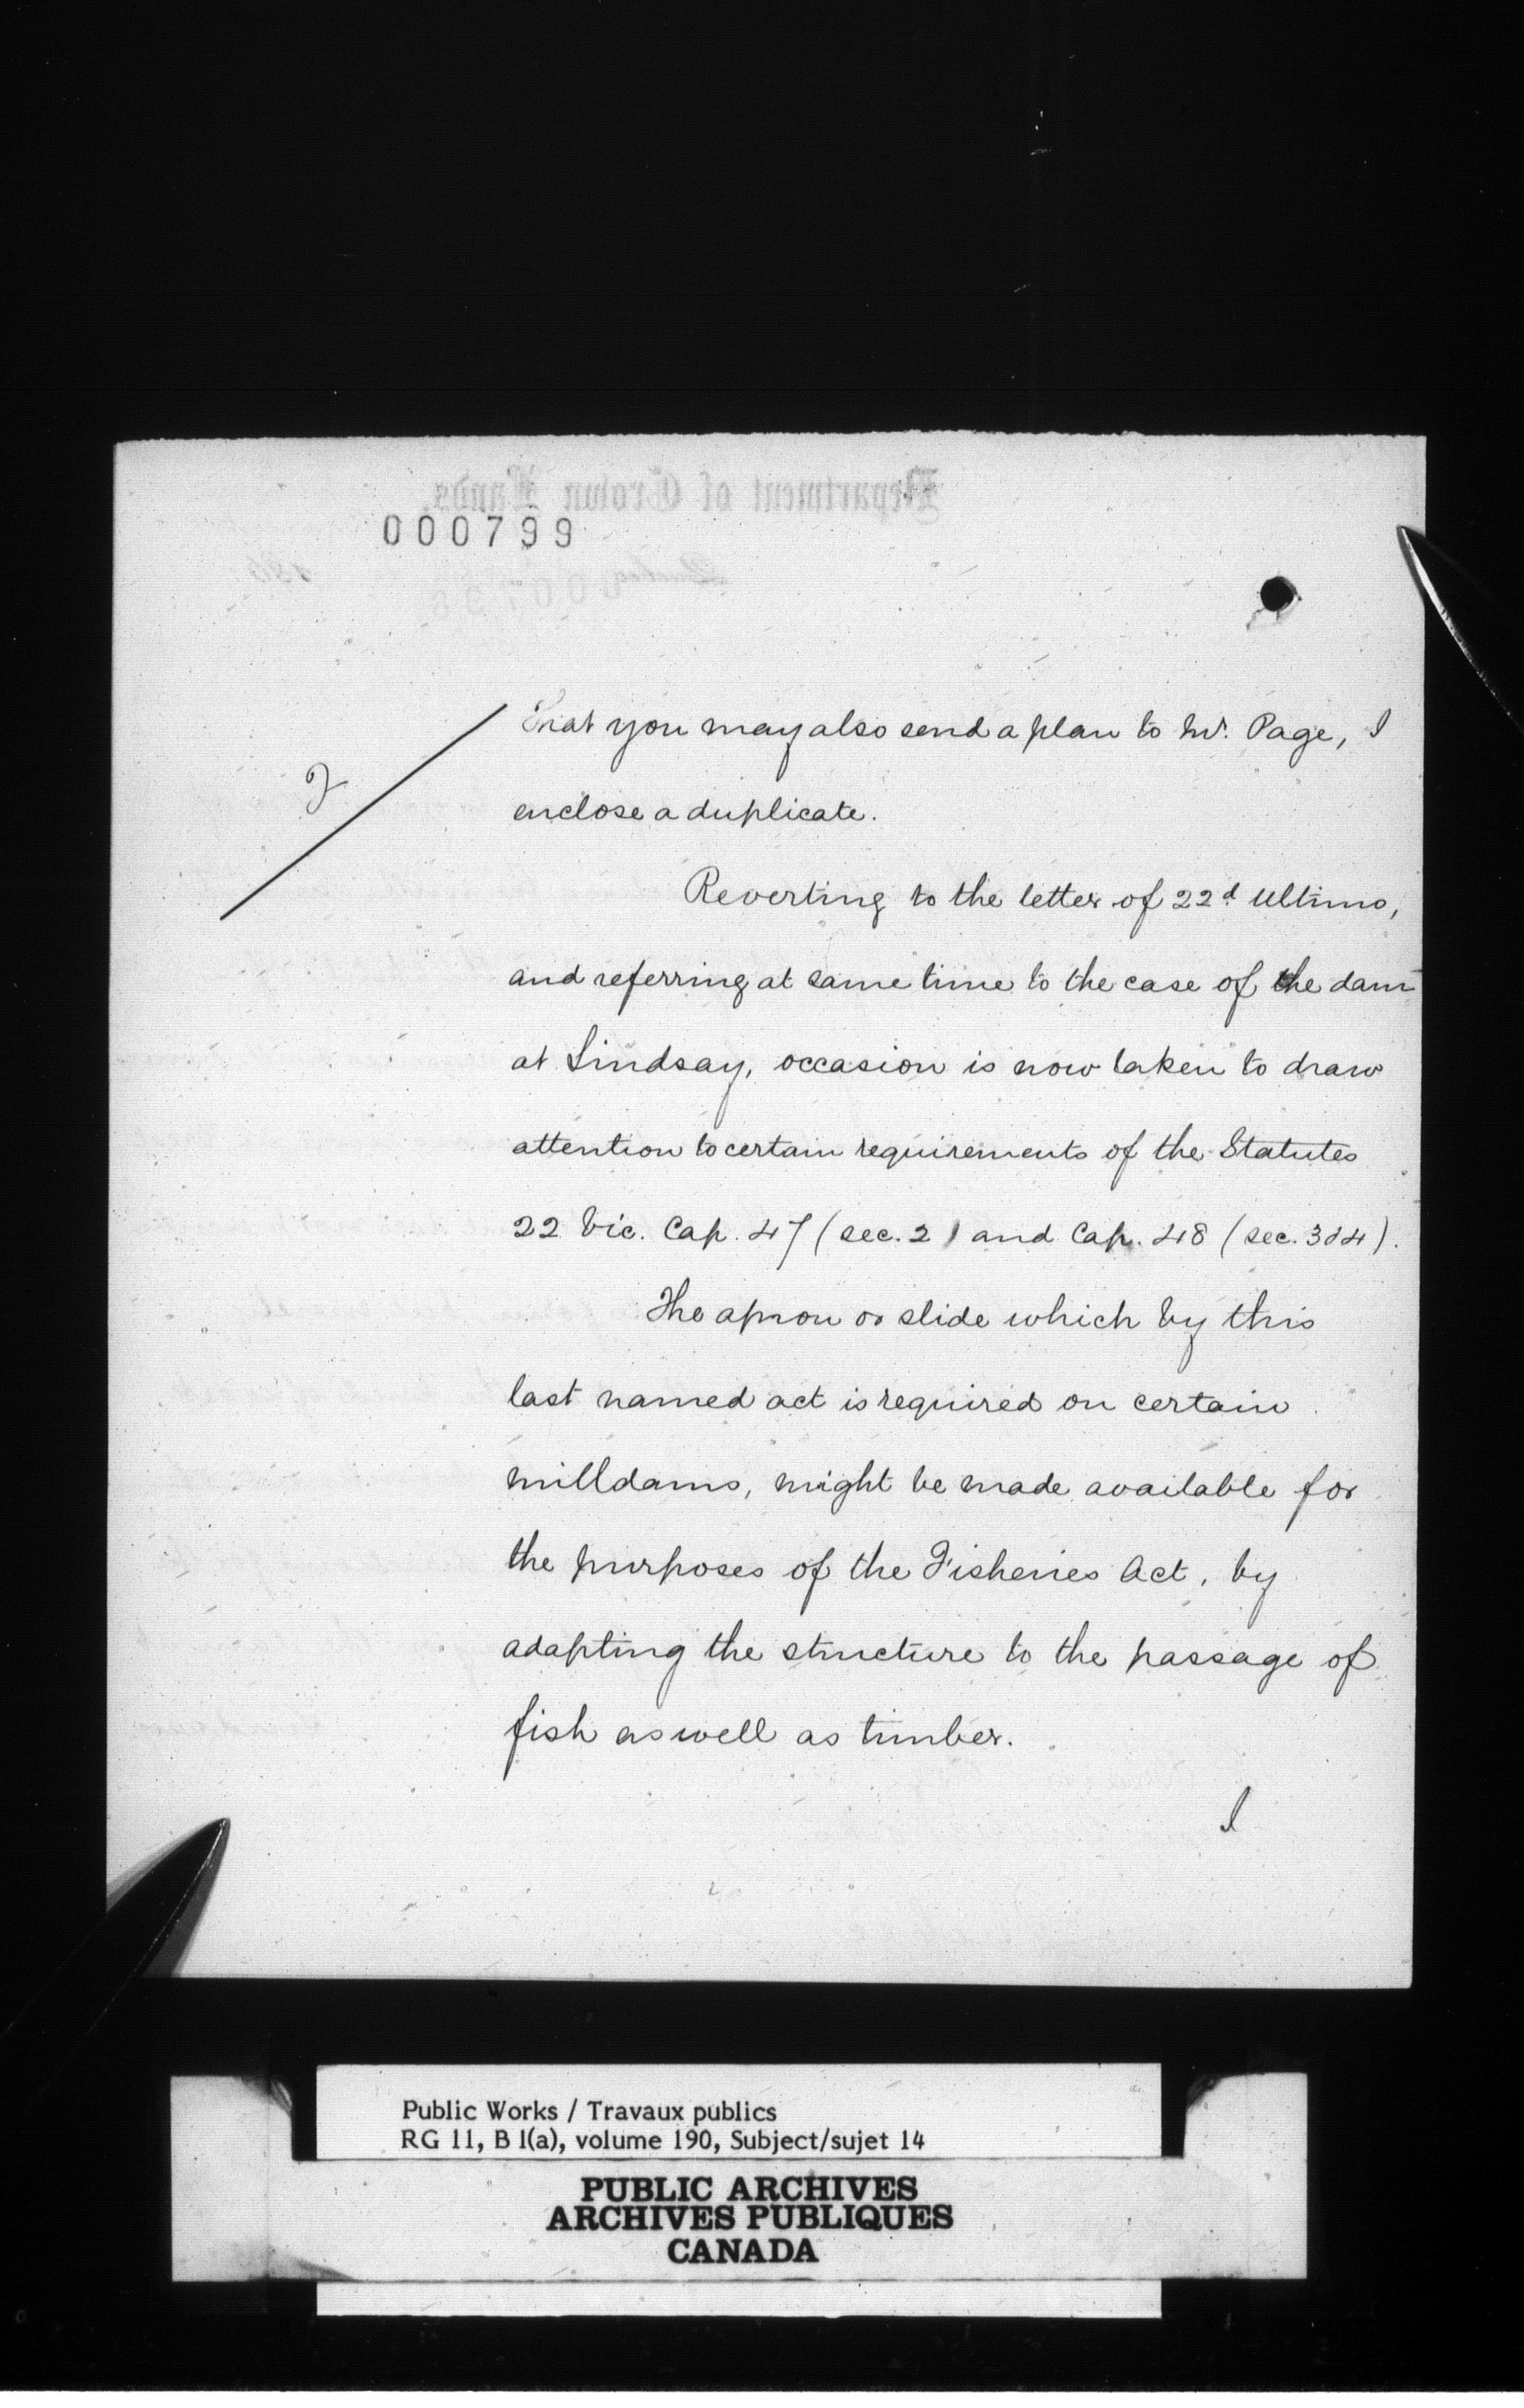 000799
2
That you may also send a plan to Mr. Page, I
enclose a duplicate.
Reverting to the letter of 22d Ultimo,
and referring at same time to the case of the dam
at Lindsay, occasion is now taken to draw
attention to certain requirements of the Statutes
22 Vic. Cap. 47 (sec. 2) and Cap. 48 (sec. 3&4).
The apron or slide which by this
last named act is required on certain
milldams, might be made available for
the purposes of the Fisheries Act, by
adapting the structure to the passage of
fish as well as timber.
I
Public Works / Travaux publics
RG 11, B 1(a), volume 190, Subject/sujet 14
PUBLIC ARCHIVES
ARCHIVES PUBLIQUES
CANADA